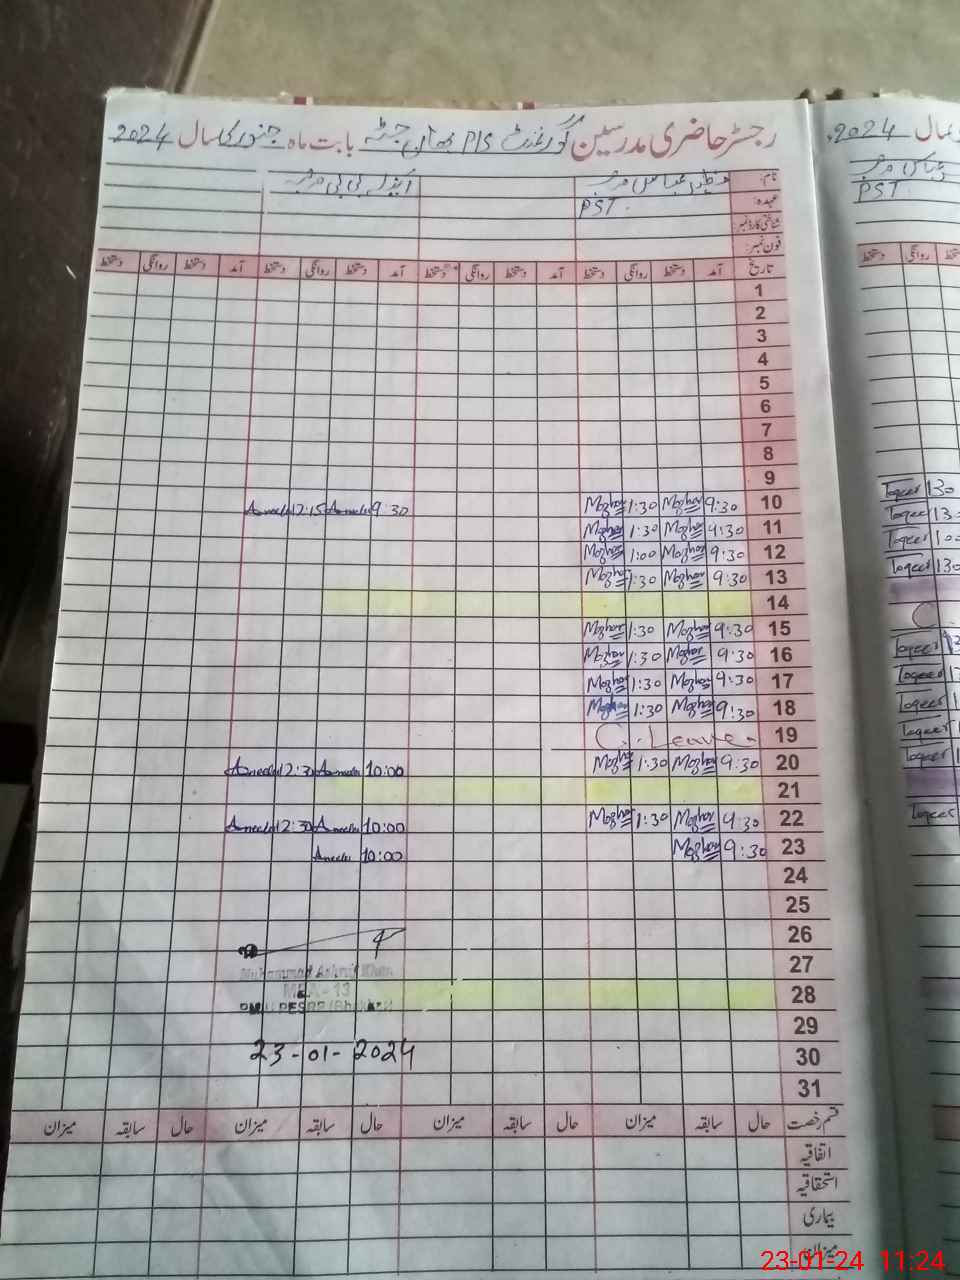 رجسٹر حاضری مدرسین گورنمنٹ P/S بھائی جٹہ بابت ماہ جنوری سال 2024
نام:
عہدہ: PST.
شناختی کارڈ نمبر:
فون نمبر:
تاریخ آمد دستخط روانگی دستخط آمد دستخط روانگی دستخط آمد دستخط روانگی دستخط آمد دستخط روانگی دستخط
1
2
3
4
5
6
7
8
9
10 9:30 Mazhar 1:30 Mazhar 9:30 Aneela 12:15 Aneela
11 9:30 Mazhar 1:30 Mazhar
12 9:30 Mazhar 1:00 Mazhar
13 9:30 Mazhar 1:30 Mazhar
14
15 9:30 Mazhar 1:30 Mazhar
16 9:30 Mazhar 1:30 Mazhar
17 9:30 Mazhar 1:30 Mazhar
18 9:30 Mazhar 1:30 Mazhar
19 C. Leave
20 9:30 Mazhar 1:30 Mazhar 10:00 Aneela 12:30 Aneela
21
22 9:30 Mazhar 1:30 Mazhar 10:00 Aneela 12:30 Aneela
23 9:30 Mazhar 10:00 Aneela
24
25
26
27
28
29
30
31
Muhammad Ashraf Khan
MEA - 13
23-01-2024
قسم رخصت حال سابقہ میزان حال سابقہ میزان حال سابقہ میزان حال سابقہ میزان
اتفاقیہ
استحقاقیہ
بیماری
میزان
سال 2024
PST
روانگی دستخط
Toqeer 130
Toqeer
Toqeer
Toqeer 130
Toqeer
Toqeer
Toqeer
Toqeer
Toqeer
Toqeer
23-01-24 11:24